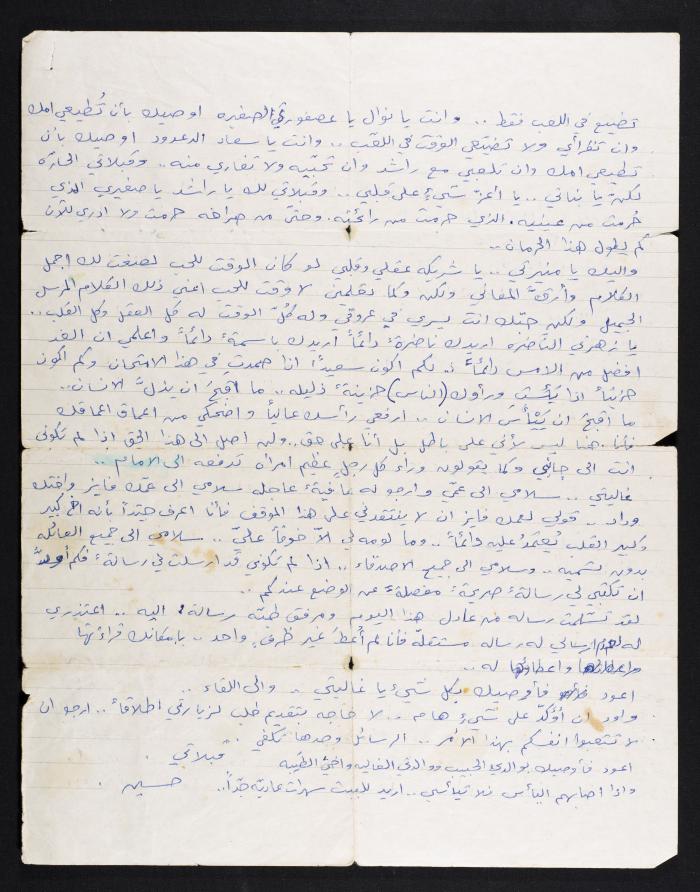 تضيع في اللعب فقط .. وانت يا نوال يا عصفورتي الصغيره اوصيك بأن تُطيعي امك
وان تقرأي ولا تضيّعي الوقت في اللعب .. وانت يا سعاد الدعدود اوصيك بان
تطيعي امك وان تلعبي مع راشد وان تحبّيه ولا تغاري منه .. وقبلاتي الحارّه
لكنّ يا بناتي .. يا أعزّ شيءٍ على قلبي .. وقبلاتي لك يا راشد يا صغيري الذي
حُرمت من عينيه. الذي حرمت من رائحته. وحتى من صراخه حرمت ولا ادري للآن
كم يطول هذا الحرمان ..
واليك يا منيرتي .. يا شريكة عقلي وقلبي لو كان الوقت للحب لصنعت لك اجمل
الكلام وأرقّ المعاني ولكن وكما تعلمين لا وقت للحب اعني ذلك الكلام المرسل
الجميل ولكن حبّك انت يسري في عروقي وله كلّ الوقت له كل العقل وكل القلب ..
يا زهرتي النّاضره اريدك ناضرةً دائماً اريدك باسمةً دائماً واعلمي ان الغد
افضل من الامس دائماً .. ولكم اكون سعيداً اذا صمدتِ في هذا الامتحان وكم اكون
حزيناً اذا يئستِ ورأوك (الناس) حزينةً ذليله .. ما اقبحَ ان يذلّ الانسان ..
ما اقبح ان ييْأس الانسان .. ارفعي رأسك عالياً واضحكي من اعماق اعماقك
فأنا هنا ليس لأني على باطل بل أنا على حق .. ولن اصل الى هذا الحق اذا لم تكوني
انت الى جانبي وكما يقولون وراء كل رجلٍ عظيم امرأه تدفعه الى الامام ..
غاليتي .. سلامي الى عمّي وارجو له عافيةً عاجله سلامي الى عمّك فايز واختك
وداد .. قولي لعمك فايز ان لا ينتقدني على هذا الموقف فأنا اعرف جيّداً بأنه اخ كبير
وكبير القلب يُعتمدُ عليه دائماً .. وما لومه لي الاّ خوفاً عليّ .. سلامي الى جميع العائله
بدون تسميه .. وسلامي الى جميع الاصدقاء .. اذا لم تكوني قد ارسلت لي رسالةً فكم أودّ
ان تكتبي لي رسالةً صريحةً مفصلةً عن الوضع عندكم ..
لقد تسلّمت رساله من عادل هذا اليوم ومرفق طيّه رسالة اليه .. اعتذري
له لعدم ارسالي له رساله مستقلّه فأنا لم أُعطَ غير ظرفٍ واحد .. بامكانك قراءتها
واعطاؤها له ..
اعود فأوصيك بكل شيءٍ يا غاليتي .. والى اللقاء ..
واود ان اؤكدّ على شيءٍ هام .. لا حاجه بتقديم طلب لزيارتي اطلاقاً .. ارجو ان
لا تتعبوا انفسكم بهذا الأمر .. الرسائل وحدها تكفي
قبلاتي
اعود فأوصيك بوالدي الحبيب ووالدتي الغاليه واختي الطيّبه
واذا اصابهم اليأس فلا تيأسي .. اريد للبيت سهرات عاديّه جدّاً ..
حسين